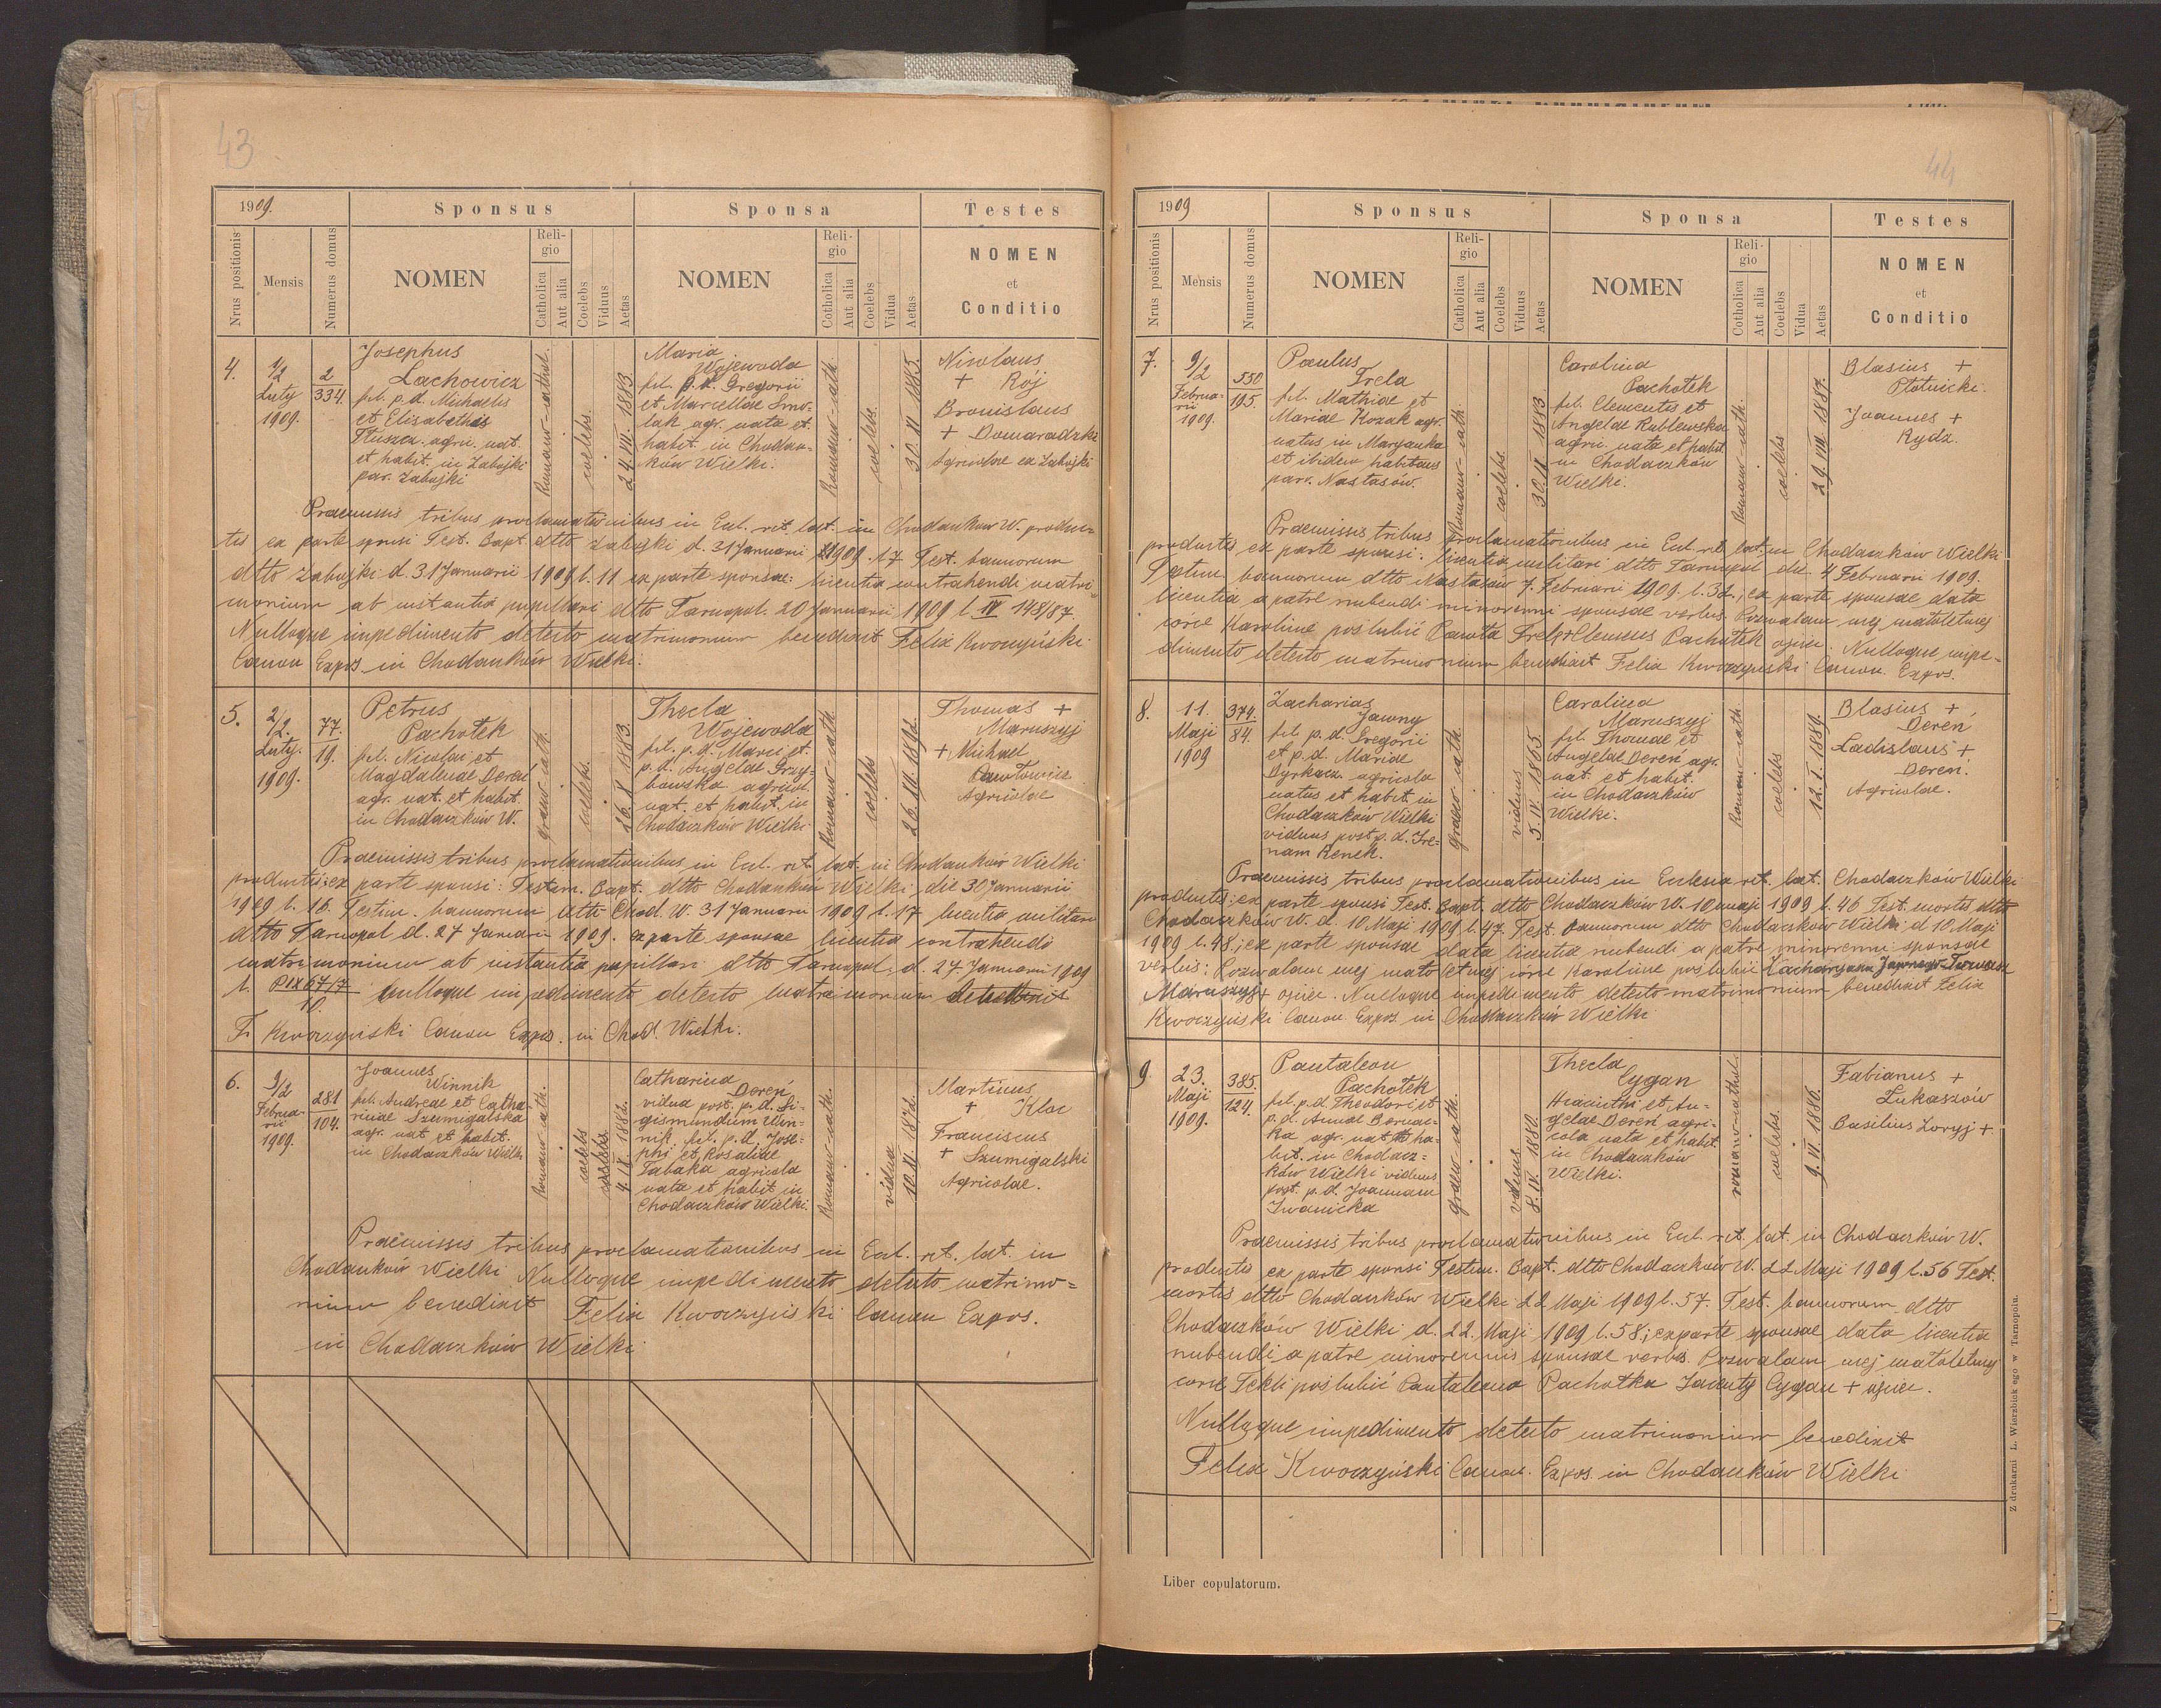 43
1909.
Sponsus
Sponsa
Testes
Nrus positionis
Mensis
Numerus domus
NOMEN
Religio
Catholica
Aut alia
Coelebs
Viduus
Aetas
NOMEN
Religio
Catholica
Aut alia
Coelebs
Vidua
Aetas
NOMEN
et
Conditio
4.
1/2
Luty
1909.
2
334.
Josephus
Lachowicz
fil. p. d. Michaelis
et Elisabethis
Tłuszcz. agri. nat.
et habit. in Zabojki
par. Zabojki
Romano-cathol.
coelebs.
24. III. 1883.
Maria
Wojewoda
fil. p. d. Gregorii
et Marcellae Smo-
lak agr. nata et
habit. in Chodacz-
ków Wielki.
Romano-cath.
coelebs.
30. XI. 1885.
Nicolaus
+ Rój
Bronislaus
+ Domaradzki
Agricolae ex Zabojki
Praemissis tribus proclamationibus in Eccl. rit. lat. in Chodaczków W. produc-
tis ex parte sponsi Test. Bapt. dtto Zabojki d. 31 Januarii 1909. l. 7 Test. bannorum
dtto Zabojki d. 31 Januarii 1909 l. 11 ex parte sponsae: licentia contrahendi matri-
monium ab instantia pupillari dtto Tarnopol. 20 Januarii 1909 l. IV 148/87.
Nulloque impedimento detecto matrimonium benedixit Felix Kworzyński
Canon Expos in Chodaczków Wielki.
5.
2/2.
Luty.
1909.
77.
19.
Petrus
Pachołek
fil. Nicolai et
Magdalenae Dereń
agr. nat. et habit.
in Chodaczków W.
graeco-cath.
coelebs.
26. X. 1883.
Thecla
Wojewoda
fil. p. d. Marci et
p. d. Angelae Grzy-
bowska agricol.
nat. et habit. in
Chodaczków Wielki
Romano-cath.
coelebs
Thomas +
Maruszyj
+ Michael
Agricolae
Praemissis tribus proclamationibus in Eccl. rit. lat. in Chodaczków Wielki
productis: ex parte sponsi: Testim. Bapt. dtto Chodaczków Wielki die 30 Januarii
1909 l. 16. Testim. bannorum dtto Chod. W. 31 Januarii 1909 l. 17 licentia militari
dtto Tarnopol d. 27 Januarii 1909. ex parte sponsae licentia contrahendi
matrimonium ab instantia pupillari dtto Tarnopol. d. 27 Januarii 1909
l. P IX 67/7
10. Nulloque impedimento detecto matrimonium
F. Kworzyński Canon Expos. in Chod. Wielki.
6.
9/2
Februa-
rii
1909.
281
104.
Joannes
Winnik
fil. Andreae et Catha-
rinae Szumigalska
agr. nat et habit.
in Chodaczków Wielki
Romano-cath.
coelebs
Catharina
Dereń
vidua post. p. d. Si-
gismundum Win-
nik, fil. p. d. Jose-
phi et Rosaliae
Tabaka agricola
nata et habit in
Chodaczków Wielki.
Romano-cath.
vidua
Martinus
+ Kloc
Franciscus
+ Szumigalski
Agricolae.
Praemissis tribus proclamationibus in Eccl. rit. lat. in
Chodaczków Wielki Nulloque impedimento detecto matrimo-
nium benedixit Felix Kworzyński Canon Expos.
in Chodaczków Wielki
44
1909
Sponsus
Sponsa
Testes
Nrus positionis
Mensis
Numerus domus
NOMEN
Religio
Catholica
Aut alia
Coelebs
Viduus
Aetas
NOMEN
Religio
Catholica
Aut alia
Coelebs
Vidua
Aetas
NOMEN
et
Conditio
7.
9/2
Februa-
rii
1909.
550
195.
Paulus
Trela
fil. Mathiae et
Mariae Kozak agr.
natus in Maryanka
et ibidem habitans
par. Nastasów.
Romano-cath.
coelebs.
30. IX 1883
Carolina
Pachołek
fil. Clementis et
Angelae Kublewska
agri. nata et habit.
in Chodaczków
Wielki.
Romano-cath.
coelebs
29. VIII. 1887.
Blasius +
Płotnicki.
Joannes +
Rydz.
Praemissis tribus proclamationibus in Eccl. rit. lat. in Chodaczków Wielki
productis ex parte sponsi: licentia militari dtto Tarnopol die 4 Februarii 1909.
Testim. bannorum dtto Nastasów 7. Februarii 1909. l. 32., ex parte sponsae data
licentia a patre nubendi minorenni sponsae verbis. Pozwalam mej małoletniej
córce Karolinie poślubić Pawła Trelę + Clemens Pachołek ojciec. Nulloque impe-
dimento detecto matrimonium benedixit Felix Kworzyński Canon. Expos.
8.
11.
Maji
1909
374.
84.
Zacharias
Jawny
fil. p. d. Gregorii
et p. d. Mariae
Dyrkacz. agricola
natus et habit. in
Chodaczków Wielki
viduus post p. d. Ire-
nam Renek.
graeco-cath.
viduus
5. IV. 1865.
Carolina
Maruszyj
fil. Thomae et
Angelae Dereń agr.
nat. et habit.
in Chodaczków
Wielki.
Romano-cath
coelebs
12. I. 1889
Blasius +
Dereń
Ladislaus +
Dereń.
Agricolae.
Praemissis tribus proclamationibus in Ecclesia rit. lat. Chodaczków Wielki
productis: ex parte sponsi Test. Bapt. dtto Chodaczków W. 10 maji 1909 l. 46 Test. mortis dtto
Chodaczków W. d. 10 Maji 1909 l. 47. Test. bannorum dtto Chodaczków Wielki d 10 Maji
1909 l. 48; ex parte sponsae data licentia nubendi a patre minorenni sponsae
verbis: Pozwalam mej małoletniej córce Karolinie poślubić Zacharyasza Jawnego Tomasz
Maruszyj + ojciec. Nulloque impedimento detecto matrimonium benedixit Felix
Kworzyński Canon. Expos. in Chodaczków Wielki
9
23.
Maji
1909.
385.
124.
Pantaleon
Pachołek
fil. p. d. Theodori et
p. d. Annae Bornac-
ka agr. nat. & ha-
bit. in Chodacz-
ków Wielki viduus
post. p. d. Joannam
Iwanicka
graeco-cath.
viduus
8. IV. 1880.
Thecla
Cygan
Hiacinthi et An-
gelae Dereń agri-
cola nata et habit.
in Chodaczków
Wielki.
romano-cathol.
coelebs.
9. VI. 1886.
Fabianus +
Łukaszów
Basilius Zoryj +
Praemissis tribus proclamationibus in Eccl. rit. lat. in Chodaczków W.
productis ex parte sponsi Testim. Bapt. dtto Chodaczków W. 22 Maji 1909 l. 56 Test.
mortis dtto Chodaczków Wielki 22 Maji 1909 l. 57. Test. bannorum dtto
Chodaczków Wielki d. 22. Maji 1909 l. 58; ex parte sponsae data licentia
nubendi a patre minorennis sponsae verbis. Pozwalam mej małoletniej
córce Tekli poślubić Pantaleona Pachołka Jacenty Cygan + ojciec.
Nulloque impedimento detecto matrimonium benedixit
Felix Kworzyński Canon. Expos. in Chodaczków Wielki
Liber copulatorum.
Z drukarni L. Wierzbickiego w Tarnopolu.